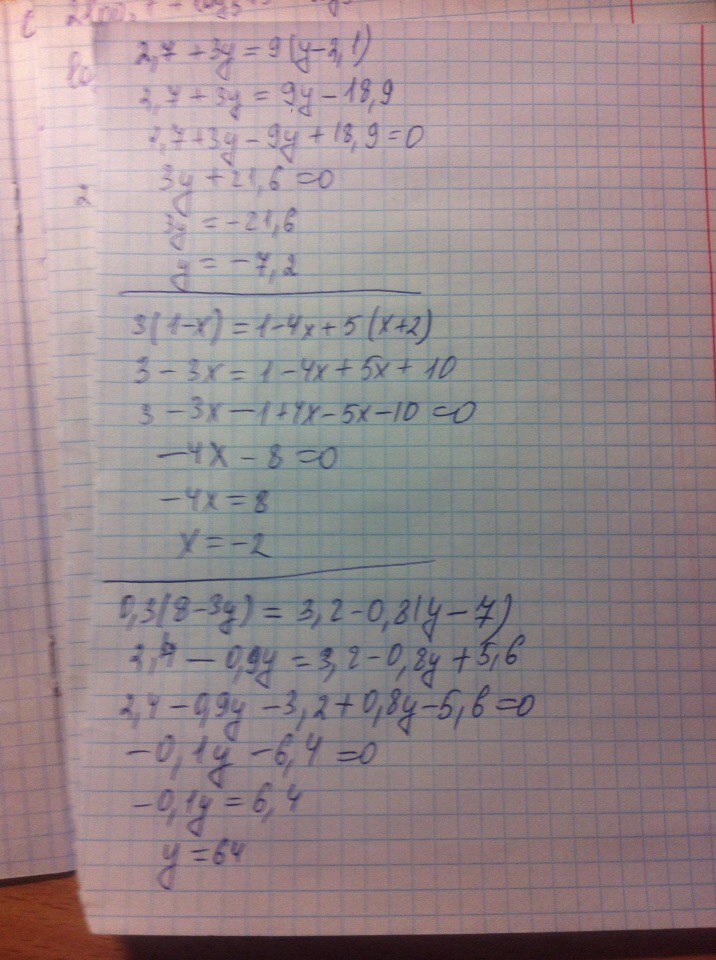 2,7 + 3y = 9(y-2,1)
2,7 + 3y = 9y - 18,9
2,7+3y - 9y + 18,9 = 0
3y + 21,6 = 0
3y = -21,6
y = -7,2
3(1-x) = 1-4x + 5(x+2)
3 - 3x = 1 - 4x + 5x + 10
3 - 3x - 1 + 4x - 5x - 10 = 0
-4x - 8 = 0
-4x = 8
x = -2
0,3(8-3y) = 3,2 - 0,8(y - 7)
2,4 - 0,9y = 3,2 - 0,8y + 5,6
2,4 - 0,9y - 3,2 + 0,8y - 5,6 = 0
-0,1y - 6,4 = 0
-0,1y = 6,4
y = 64